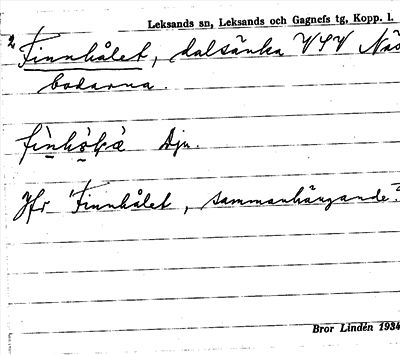 Leksands sn, Leksands och Gagnefs tg, Kopp. l.
2 Finnhålet, dalsänka VSV Näs
bodarna.
Ajn.
Jfr Finnhålet, sammanhängande?
Bror Lindén 1934